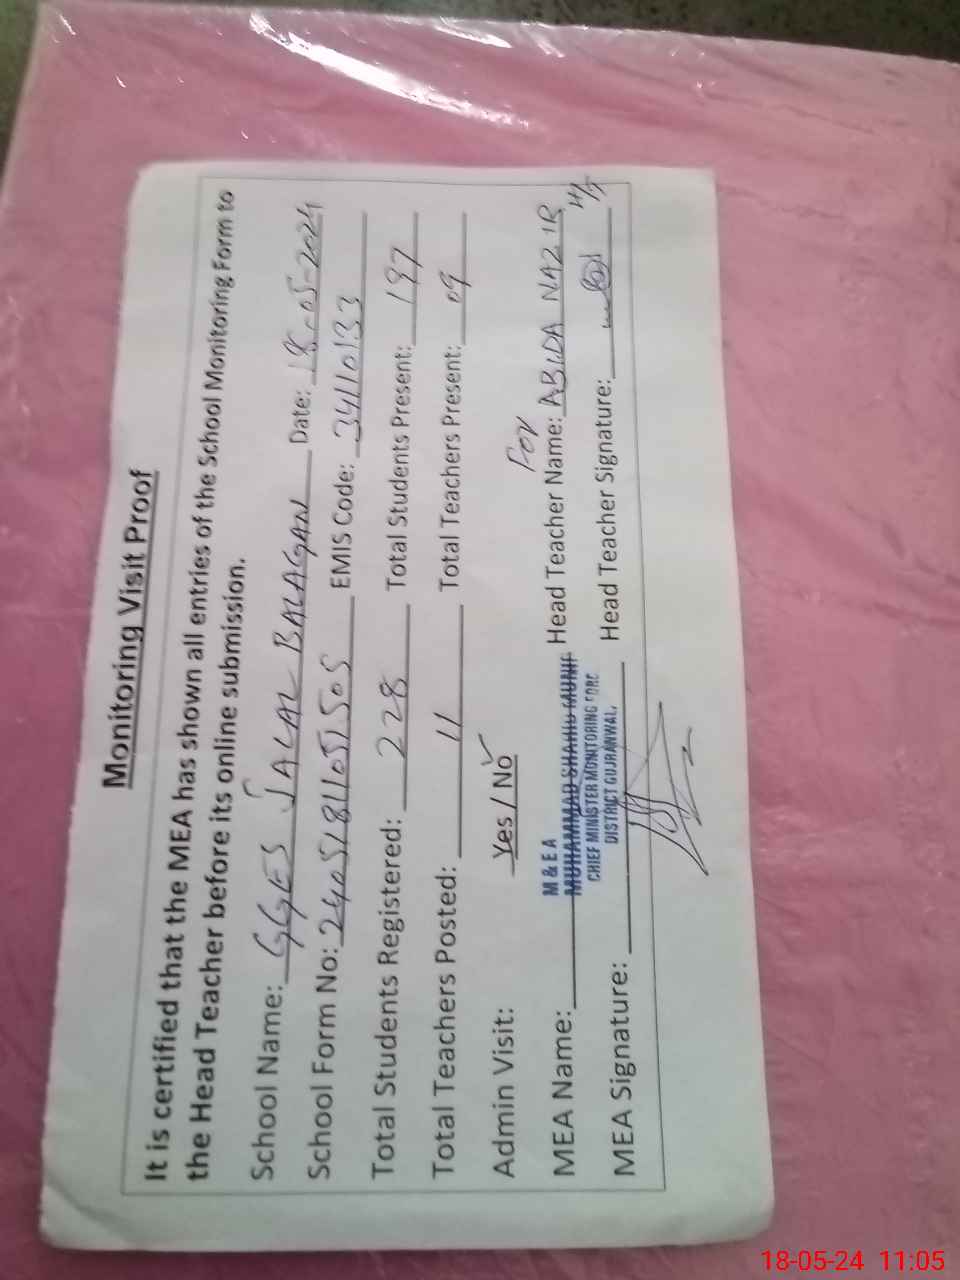 Monitoring Visit Proof
It is certified that the MEA has shown all entries of the School Monitoring Form to
the Head Teacher before its online submission.
School Name: GGES JALAL BALAGAN Date: 18-05-2024
School Form No: 2405181105150S EMIS Code: 34110133
Total Students Registered: 228 Total Students Present: 197
Total Teachers Posted: 11 Total Teachers Present: 09
Admin Visit: Yes / No ✓
For
M & E A
MEA Name: MUHAMMAD SHAHID MUNIF Head Teacher Name: ABIDA NAZIR
CHIEF MINISTER MONITORING FORC
DISTRICT GUJRANWAL,
MEA Signature: Head Teacher Signature:
18-05-24 11:05